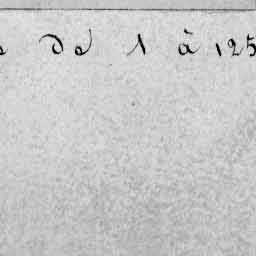 de 1 à 125